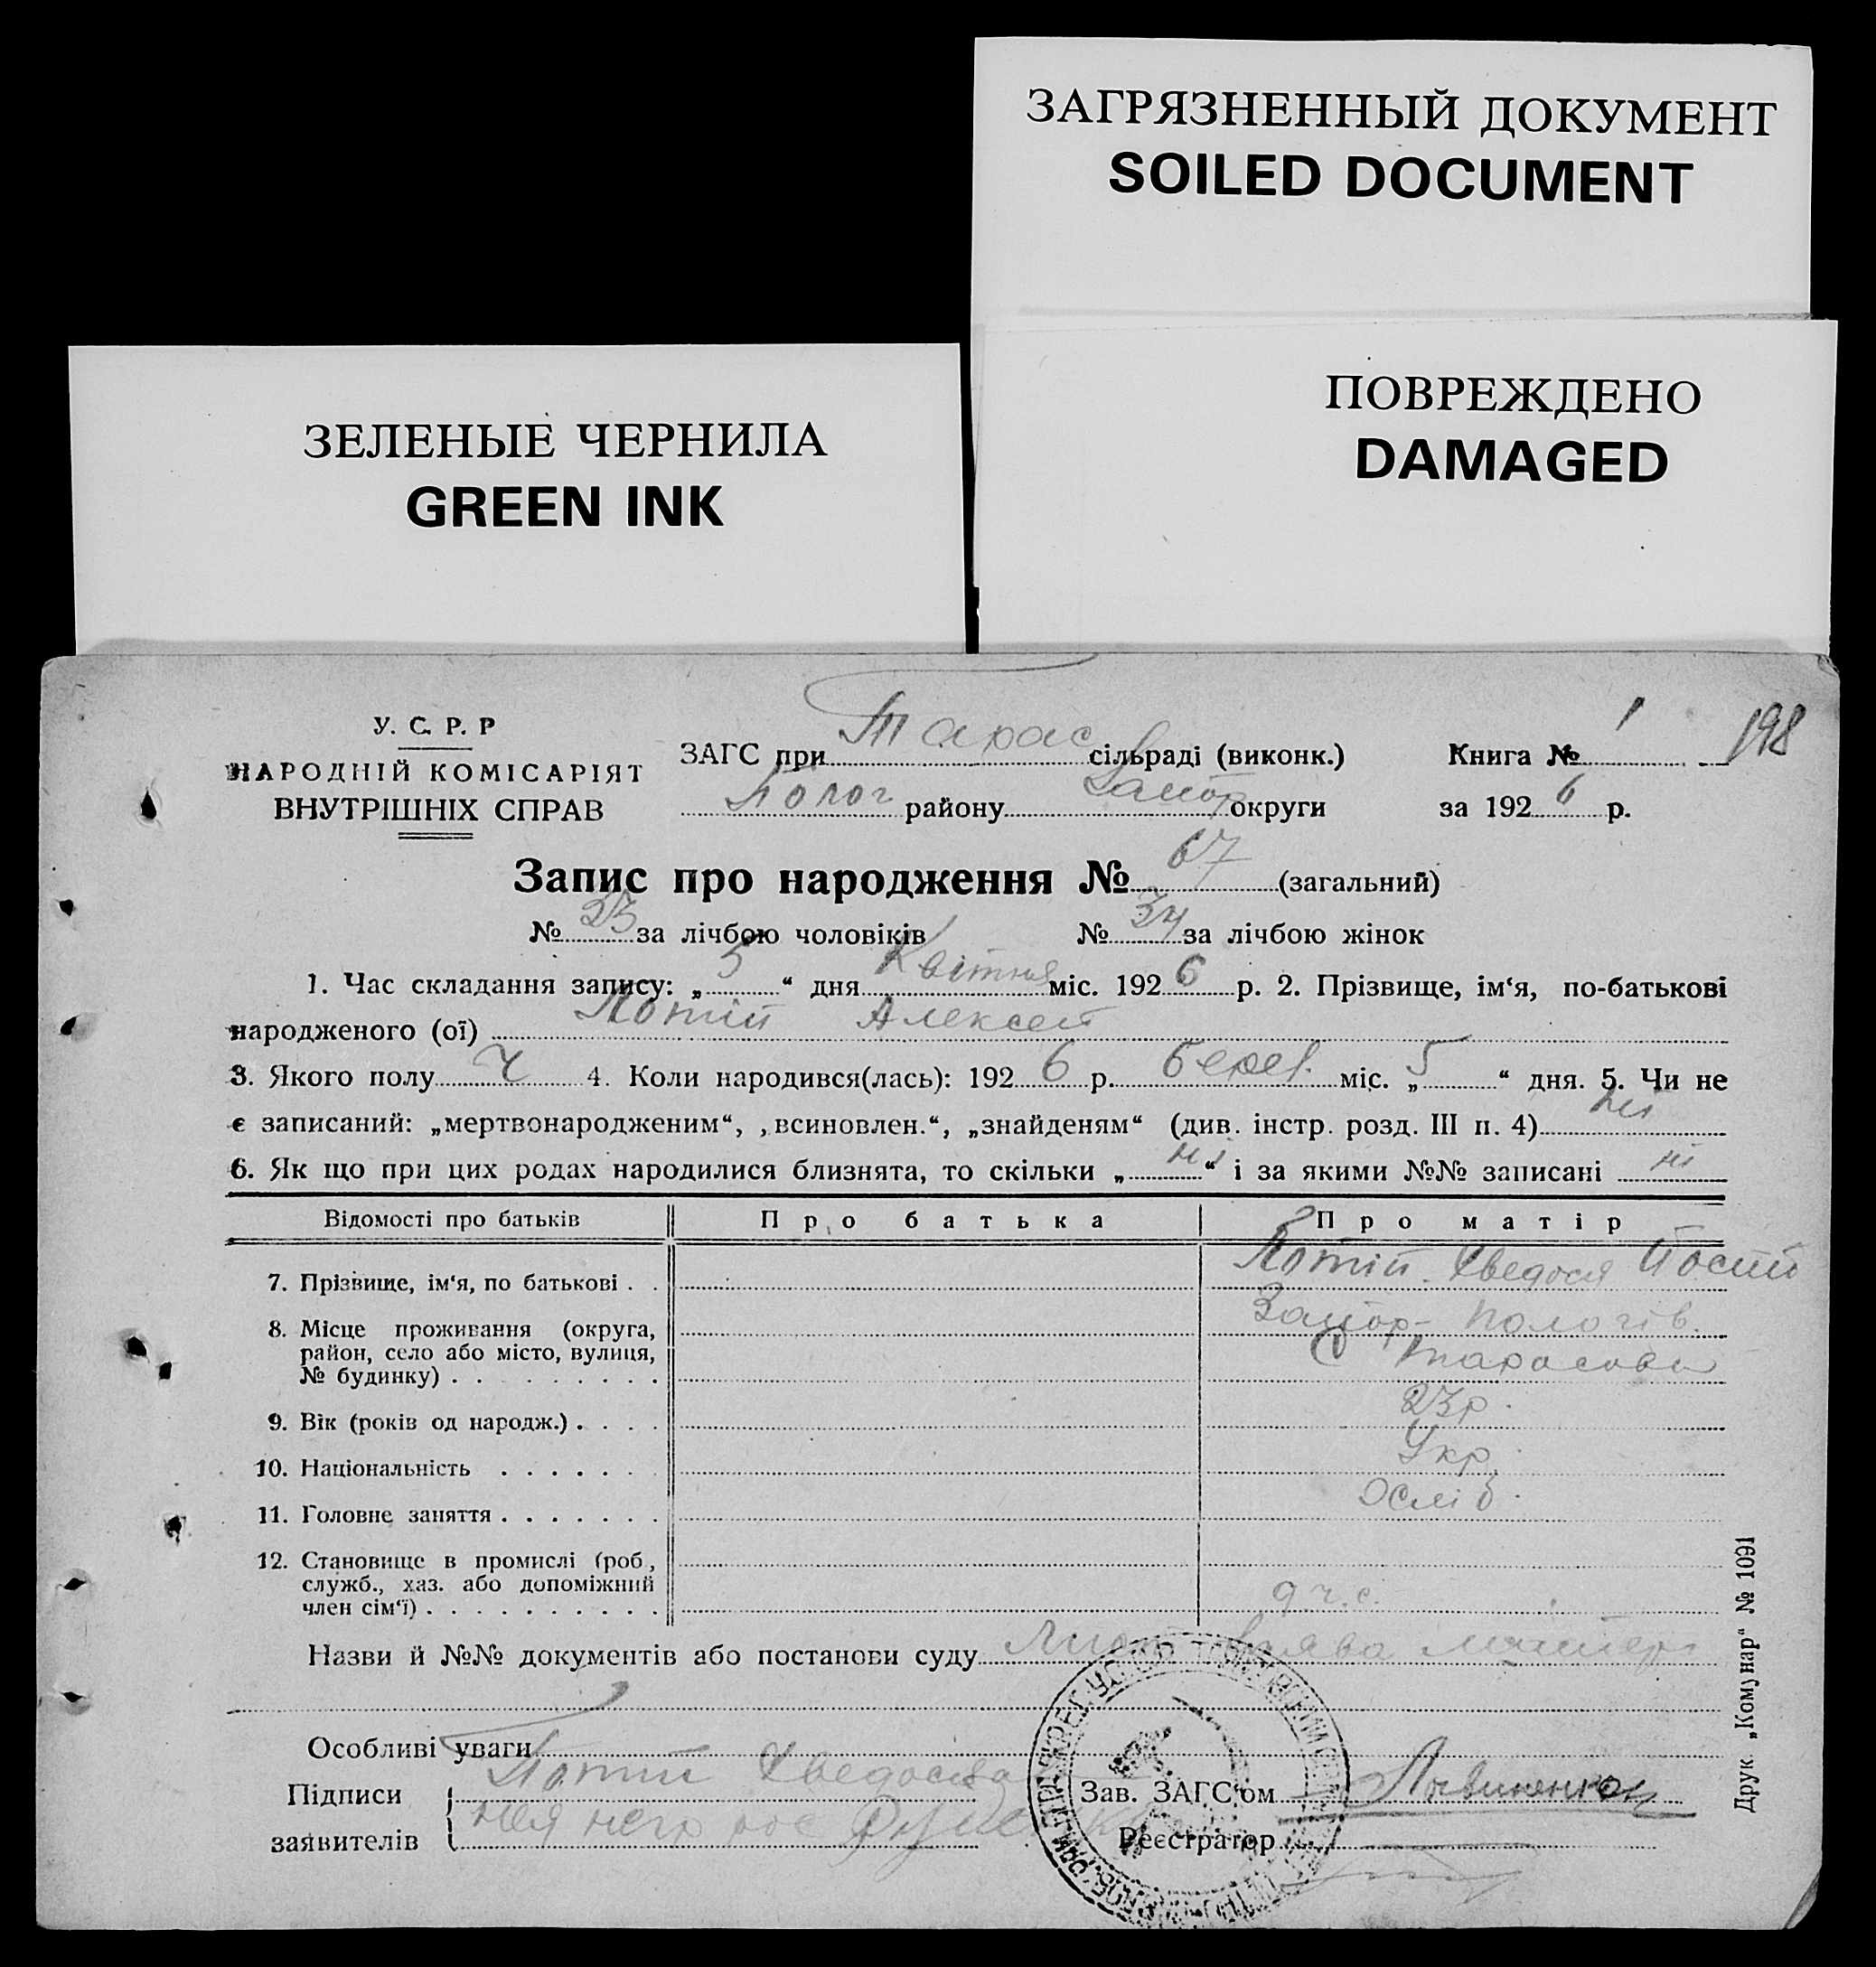 ЗАГРЯЗНЕННЫЙ ДОКУМЕНТ
SOILED DOCUMENT
ПОВРЕЖДЕНО
DAMAGED
ЗЕЛЕНЫЕ ЧЕРНИЛА
GREEN INK
У. С. Р. Р
НАРОДНІЙ КОМІСАРІЯТ
ВНУТРІШНІХ СПРАВ
ЗАГС при Тарас сільраді (виконк.)
Полог району Запор округи
Книга № 1 198
за 1926 р.
Запис про народження № 67 (загальний)
№ 33 за лічбою чоловіків № 34 за лічбою жінок
1. Час складання запису: „5“ дня Квітня міс. 1926 р. 2. Прізвище, ім‘я, по-батькові
народженого (ої) Потій Алексей
3. Якого полу Ч 4. Коли народився(лась): 1926 р. берез. міс. „5“ дня. 5. Чи не
є записаний: „мертвонародженим“, „всиновлен.“, „знайденям“ (див. інстр. розд. III п. 4) ні
6. Як що при цих родах народилися близнята, то скільки „ні“ і за якими №№ записані ні
Відомості про батьків Про батька Про матір
7. Прізвище, ім‘я, по батькові . . Потій Хведося Йосип
8. Місце проживання (округа, Запор- Пологів.
район, село або місто, вулиця, с Тарасовка
№ будинку) . . . . . . . . .
9. Вік (років од народж.) . . . . 23 р.
10. Національність . . . . . . Укр.
11. Головне заняття . . . . . . .
12. Становище в промислі (роб.,
служб., хаз. або допоміжний
член сім‘ї) . . . . . . . . . . д.ч.с.
Назви й №№ документів або постанови суду заява матери
Особливі уваги
Підписи Потий Хведосия
заявителів
Зав. ЗАГС‘ом Литвиненко
Реєстратор
Друк. „Комунар“ № 1091